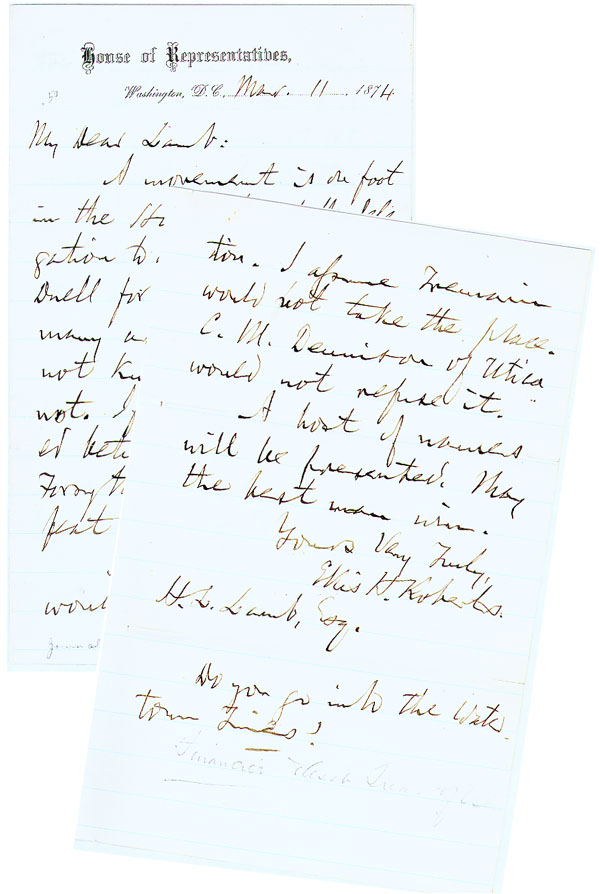 House of Representatives,
Washington, D.C. Mar. 11 1874
My Dear Lamb:
A movement is on foot
in the
gation to
Duell for
many
not
not.
ed
would
tion. I assume Tremain
would not take the place.
C. M. Dennison of Utica
would not refuse it.
A host of names
will be presented. May
the best man win.
Yours Very Truly,
Ellis H. Roberts.
H. L. Lamb, Esq.
Do you go into the Water-
town Times?